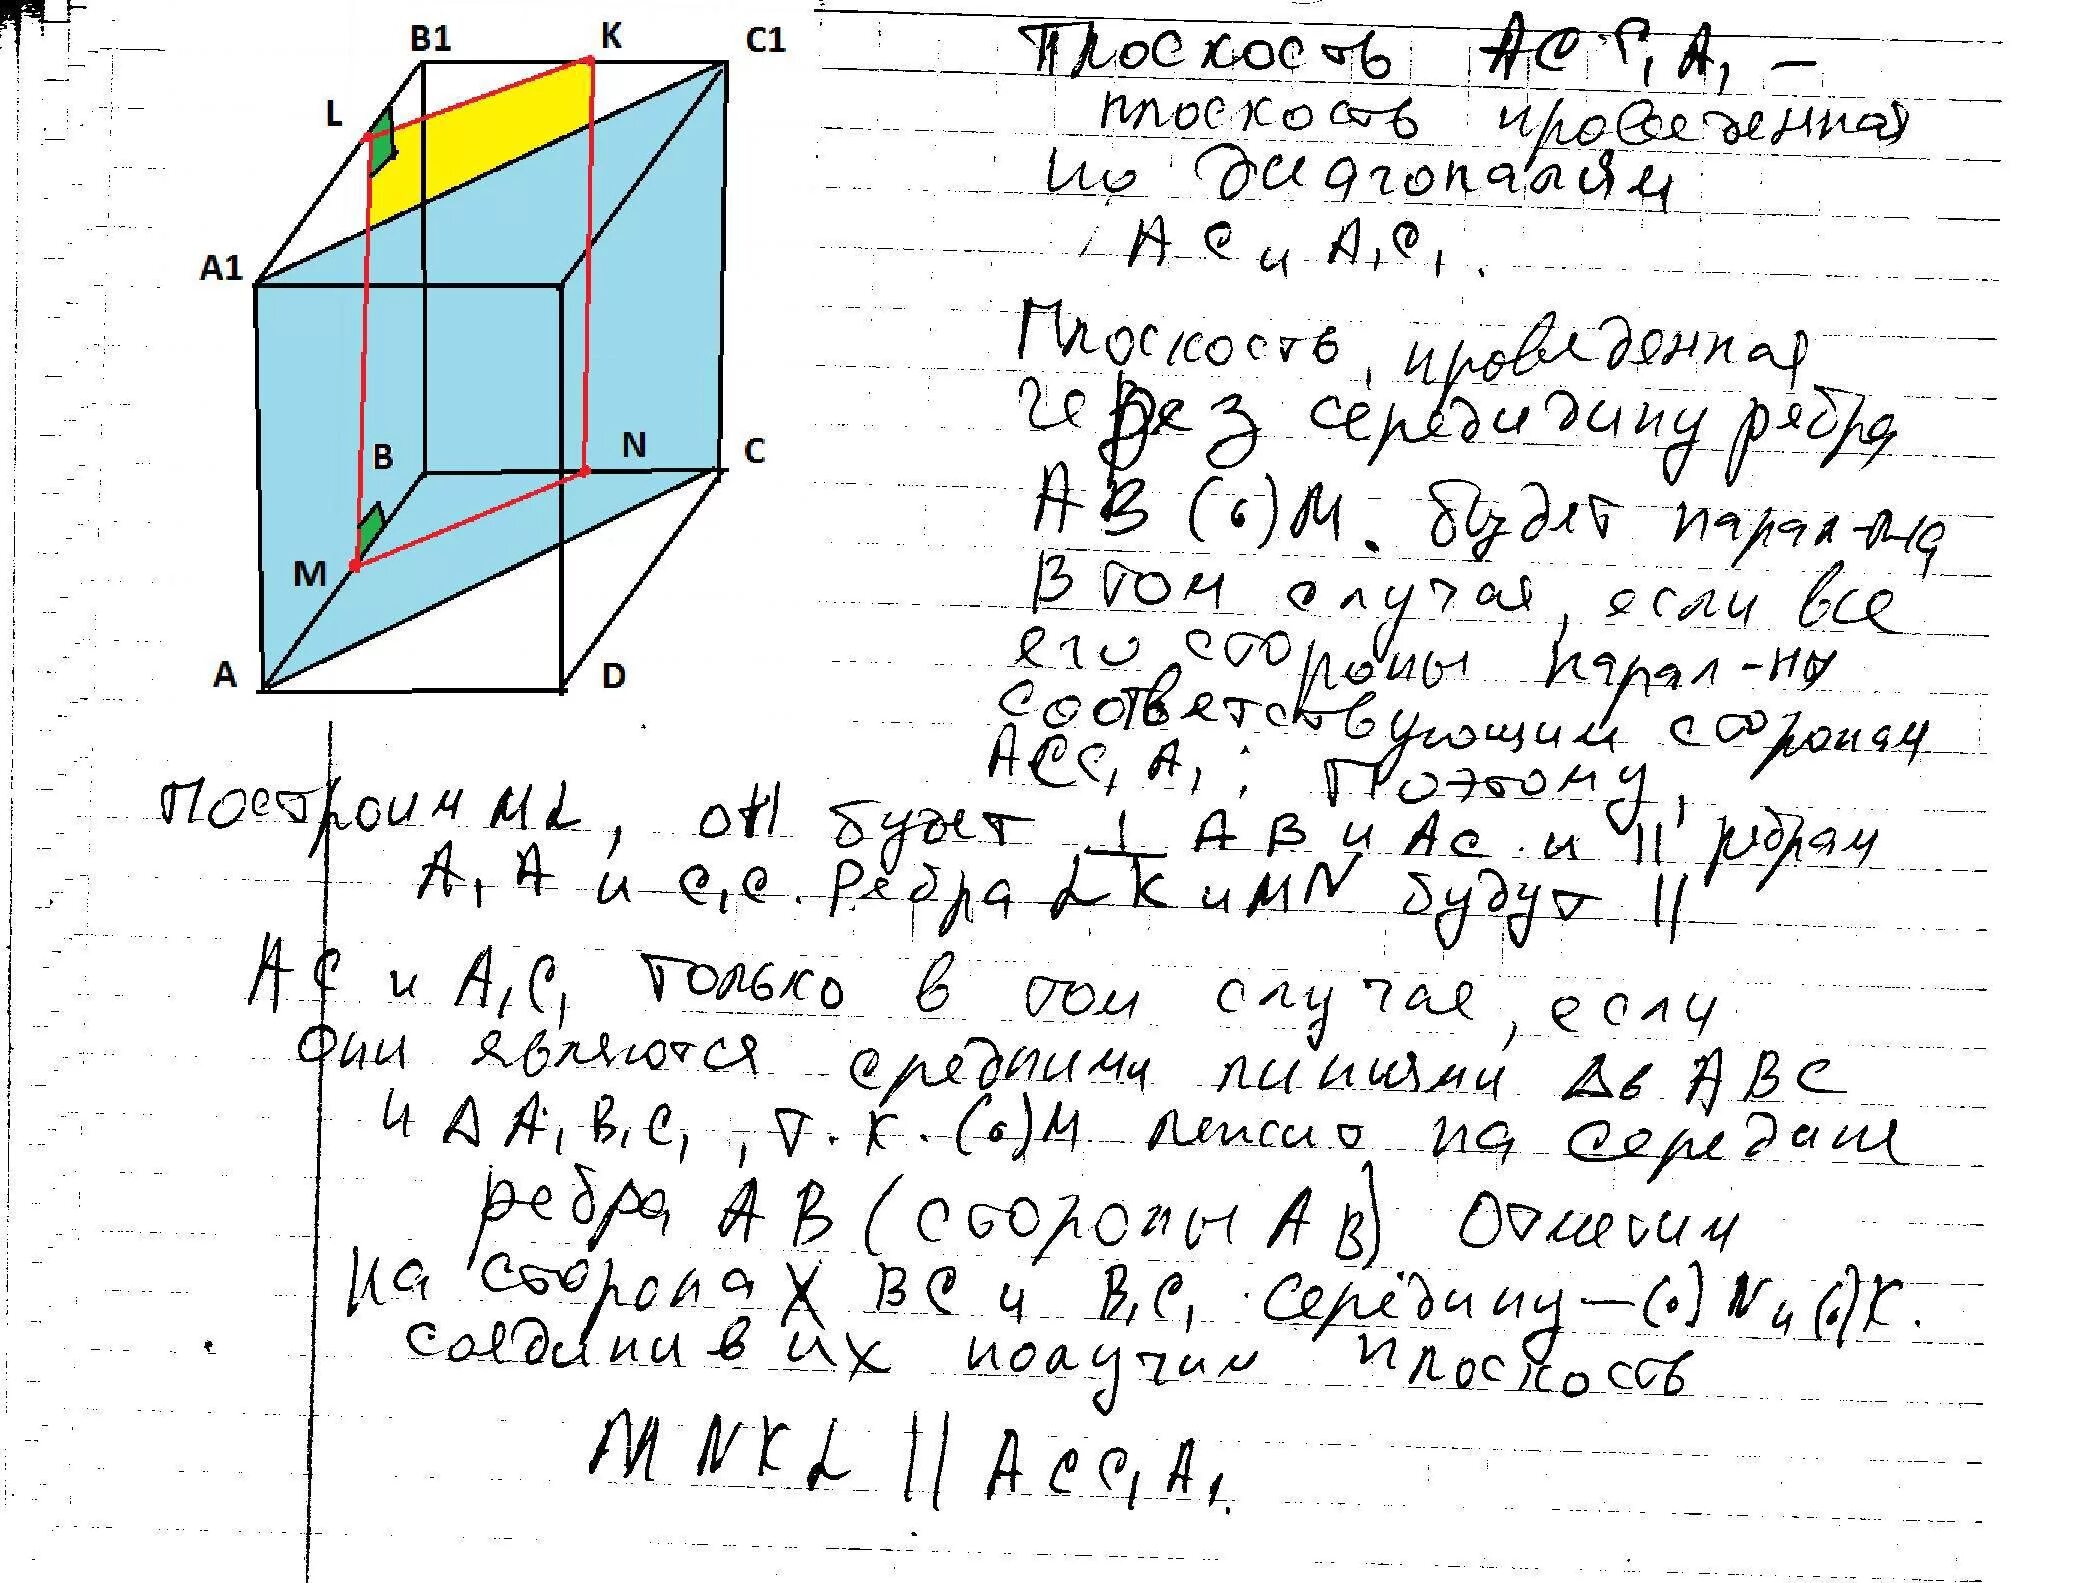 B1
K
C1
L
A1
B
N
C
M
A
D
Плоскость ACC₁A₁ –
плоскость проведенная
по диагоналям
AC и A₁C₁.
Плоскость, проведенная
через серединину ребра
AB (•)M. будет парал-на
в том случае, если все
его стороны парал-ны
соответствующим сторонам
ACC₁A₁; Поэтому,
Построим ML, он будет ⊥ AB и AC и || ребрам
A₁A и C₁C. Ребра LK и MN будут ||
AC и A₁C₁ только в том случае, если
они являются средними линиями Δв ABC
и Δ A₁B₁C₁, т.к. (•)M лежит на середине
ребра AB (стороны AB) Отметим
на сторонах BC и B₁C₁ середину – (•)N и (•)K.
соединив их получим плоскость
MNKL || ACC₁A₁.